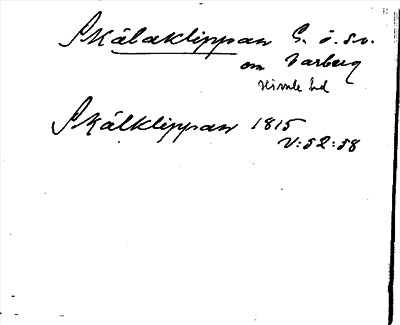 Skålaklippan G. ö. s.v.
om Varberg
Himle hd
Skålklippan 1815
V:52:58